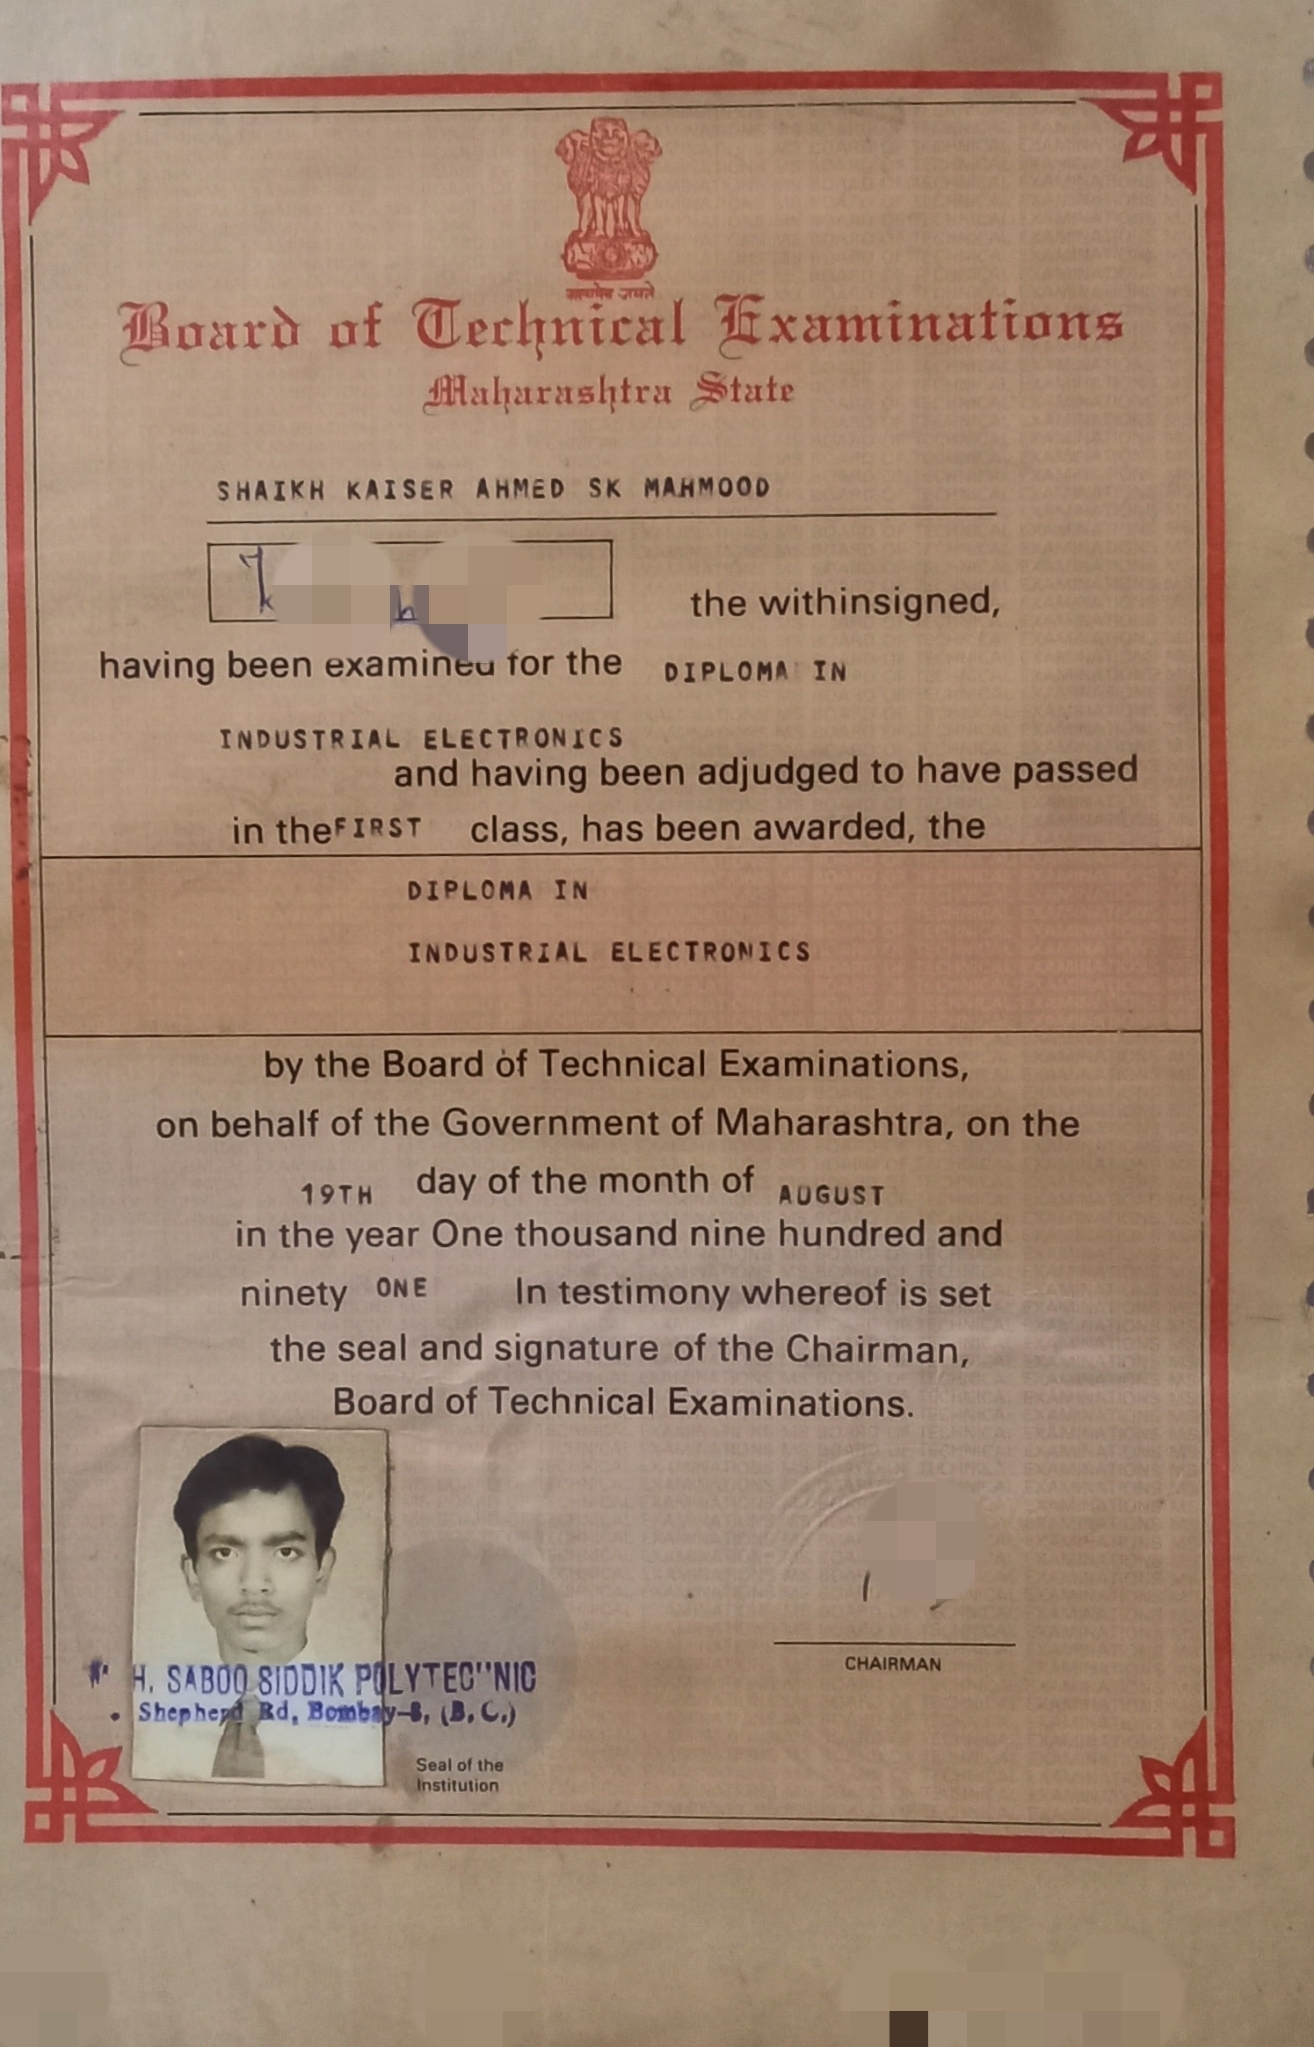 सत्यमेव जयते
Board of Technical Examinations
Maharashtra State
SHAIKH KAISER AHMED SK MAHMOOD
the withinsigned,
having been examined for the DIPLOMA IN
INDUSTRIAL ELECTRONICS
and having been adjudged to have passed
in the FIRST class, has been awarded, the
DIPLOMA IN
INDUSTRIAL ELECTRONICS
by the Board of Technical Examinations,
on behalf of the Government of Maharashtra, on the
19TH day of the month of AUGUST
in the year One thousand nine hundred and
ninety ONE In testimony whereof is set
the seal and signature of the Chairman,
Board of Technical Examinations.
CHAIRMAN
H. SABOO SIDDIK POLYTEC"NIC
Shepherd Rd, Bombay-8, (B.C.)
Seal of the
Institution